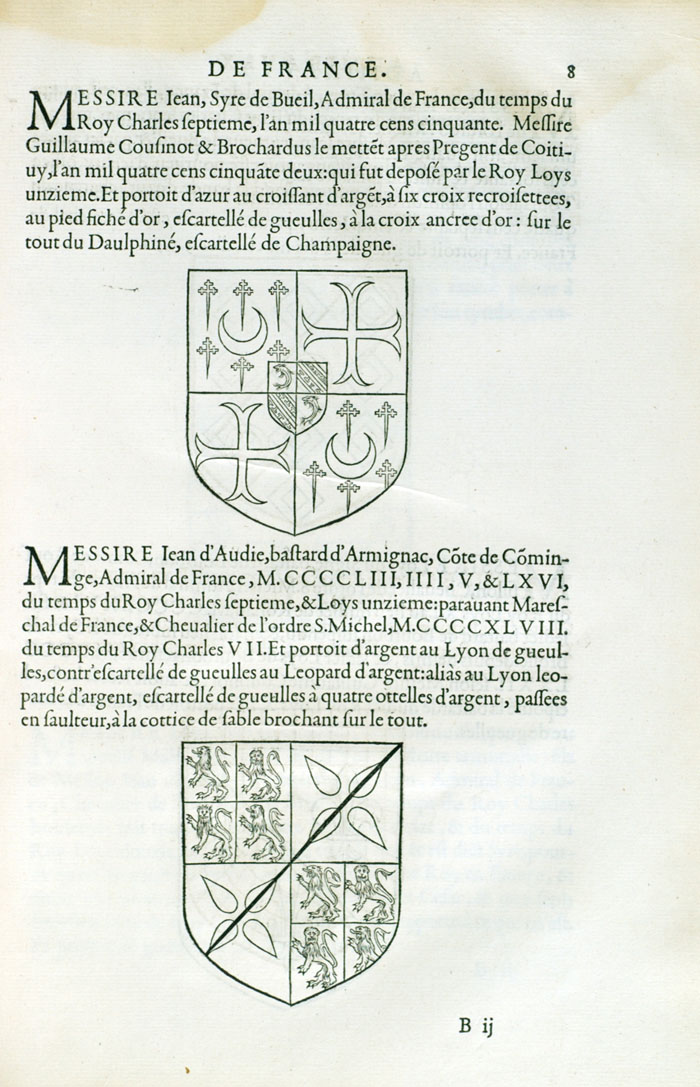 DE FRANCE. 8
MESSIRE Iean, Syre de Bueil, Admiral de France, du temps du
Roy Charles ſeptieme, l'an mil quatre cens cinquante. Meſſire
Guillaume Couſinot & Brochardus le mettẽt apres Pregent de Coiti-
uy, l'an mil quatre cens cinquãte deux: qui fut depoſé par le Roy Loys
unzieme. Et portoit d'azur au croiſſant d'argẽt, à ſix croix recroiſettees,
au pied fiché d'or, eſcartellé de gueulles, à la croix ancree d'or: ſur le
tout du Daulphiné, eſcartellé de Champaigne.
MESSIRE Iean d'Audie, baſtard d'Armignac, Cõte de Cõmin-
ge, Admiral de France, M. CCCCLIII, IIII, V, & LXVI,
du temps du Roy Charles ſeptieme, & Loys unzieme: parauant Mareſ-
chal de France, & Cheualier de l'ordre S. Michel, M. CCCCXLVIII.
du temps du Roy Charles VII. Et portoit d'argent au Lyon de gueul-
les, contr'eſcartellé de gueulles au Leopard d'argent: aliàs au Lyon leo-
pardé d'argent, eſcartellé de gueulles à quatre ottelles d'argent, paſſees
en ſaulteur, à la cottice de ſable brochant ſur le tout.
B ij